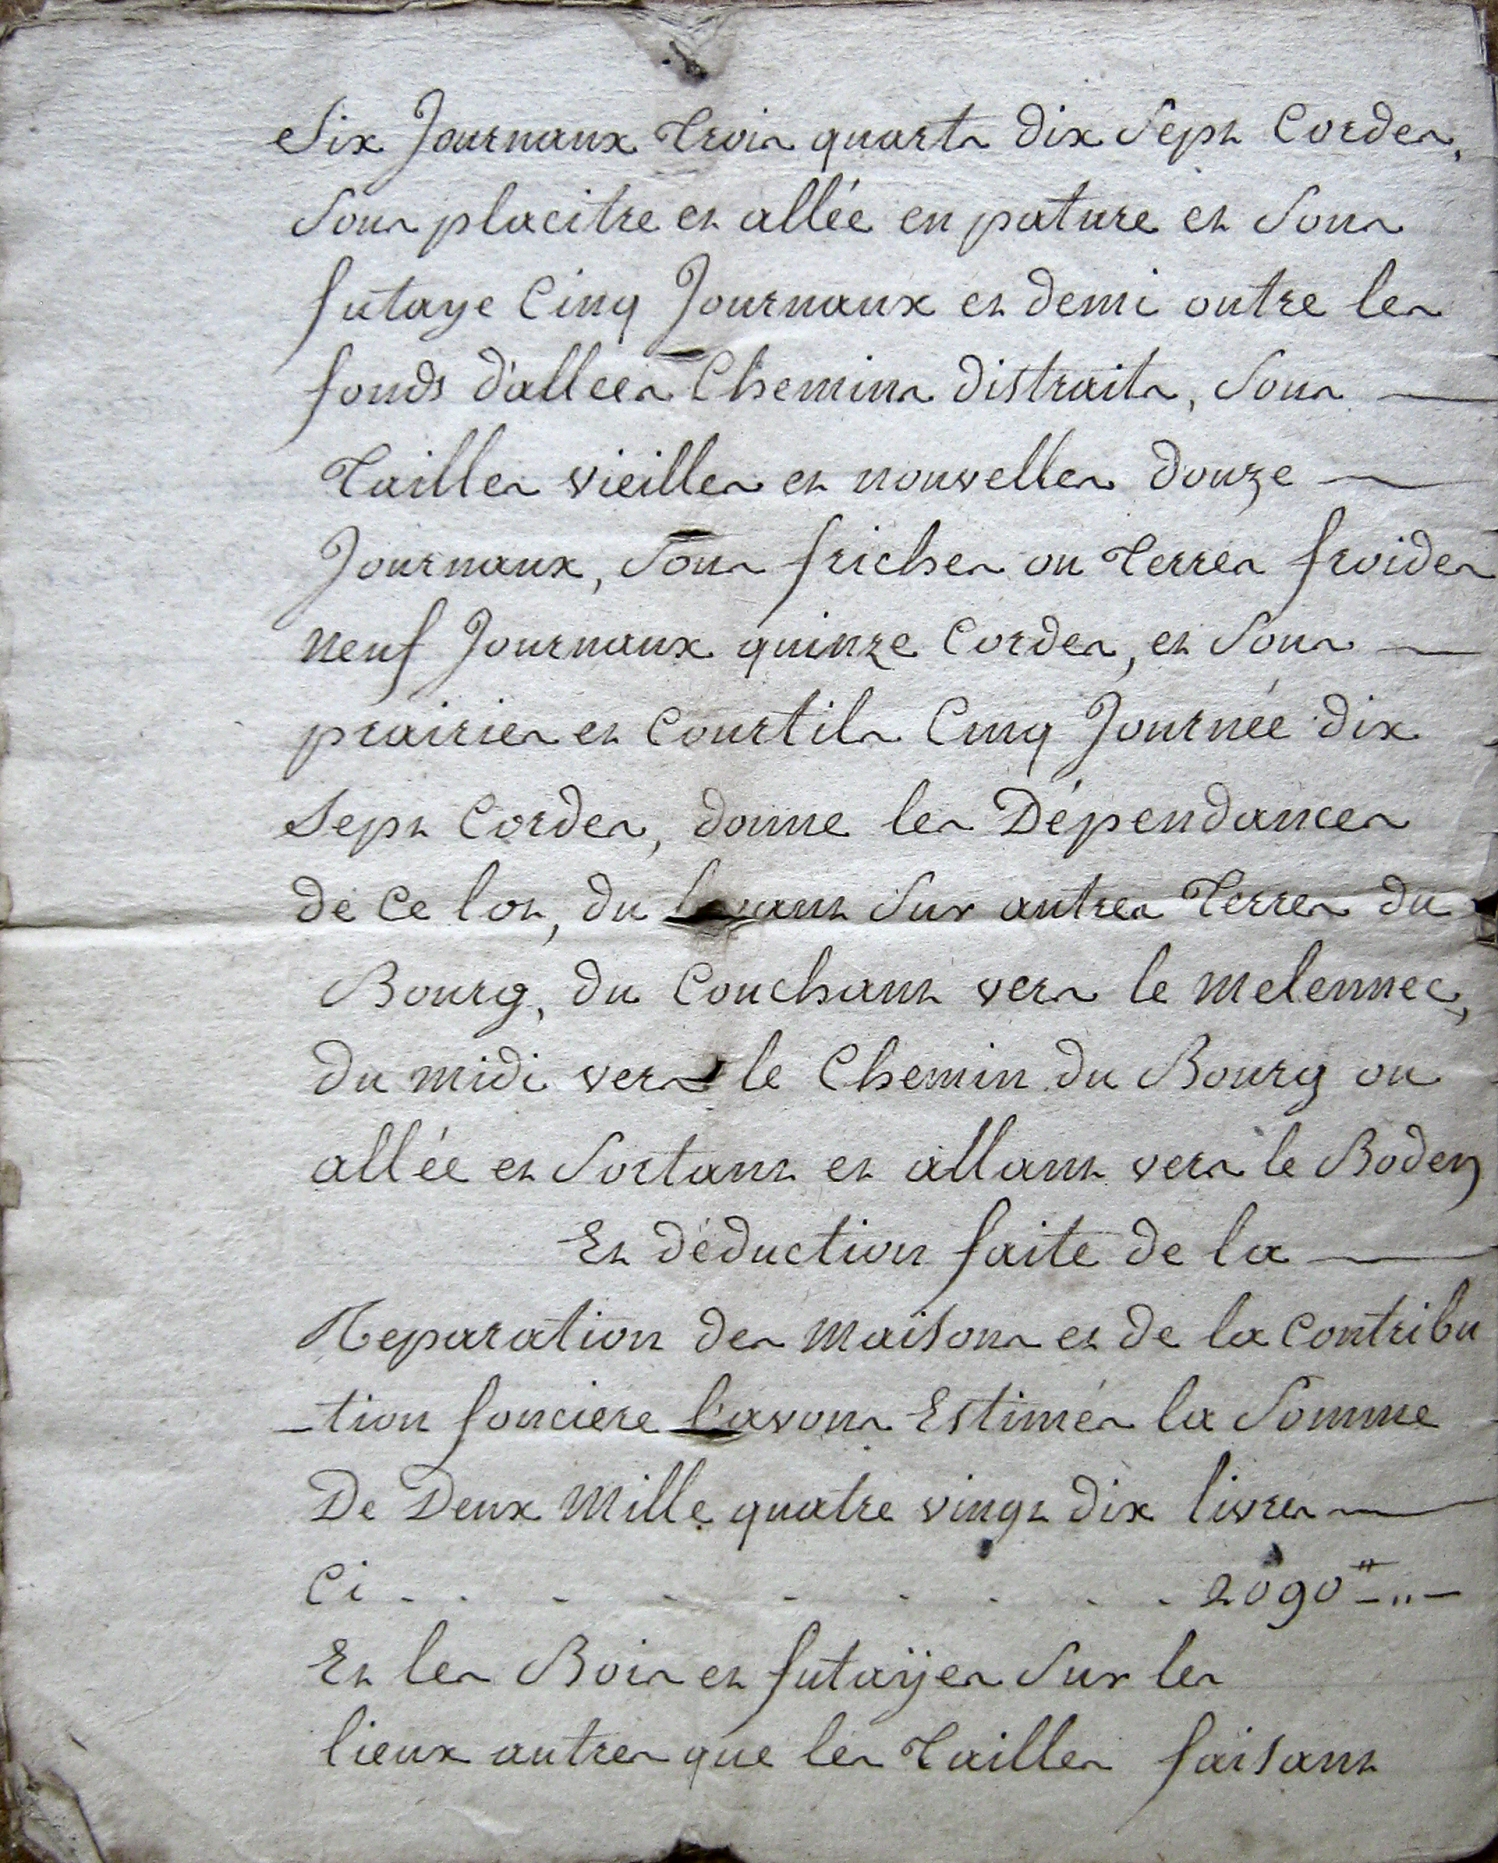 Six Journaux trois quarts dix Sept Cordes,
Sous placitre et allée en pature et Sous
futaye Cinq Journaux et demi outre les
fonds d'allees Chemins distraits, Sous
tailles vieilles et nouvelles douze
Journaux, Sous friches ou terres froides
neuf Journaux quinze Cordes, et Sous
prairies et Courtils Cinq Journée dix
Sept Cordes, donne les Dépendances
de Ce lot, du levant Sur autres terres du
Bourg, du Couchant vers le melennec,
du midi vers le Chemin du Bourg ou
allée et Sortant et allant vers le Boden
Et déduction faite de la
Reparation des maisons et de la Contribu
-tion fonciere l'avons Estimés la Somme
De Deux Mille quatre vingt dix livres
Ci - . - - - . - . - 2090" - " -
Et les Bois et futaÿes Sur les
lieux autres que les tailles faisant